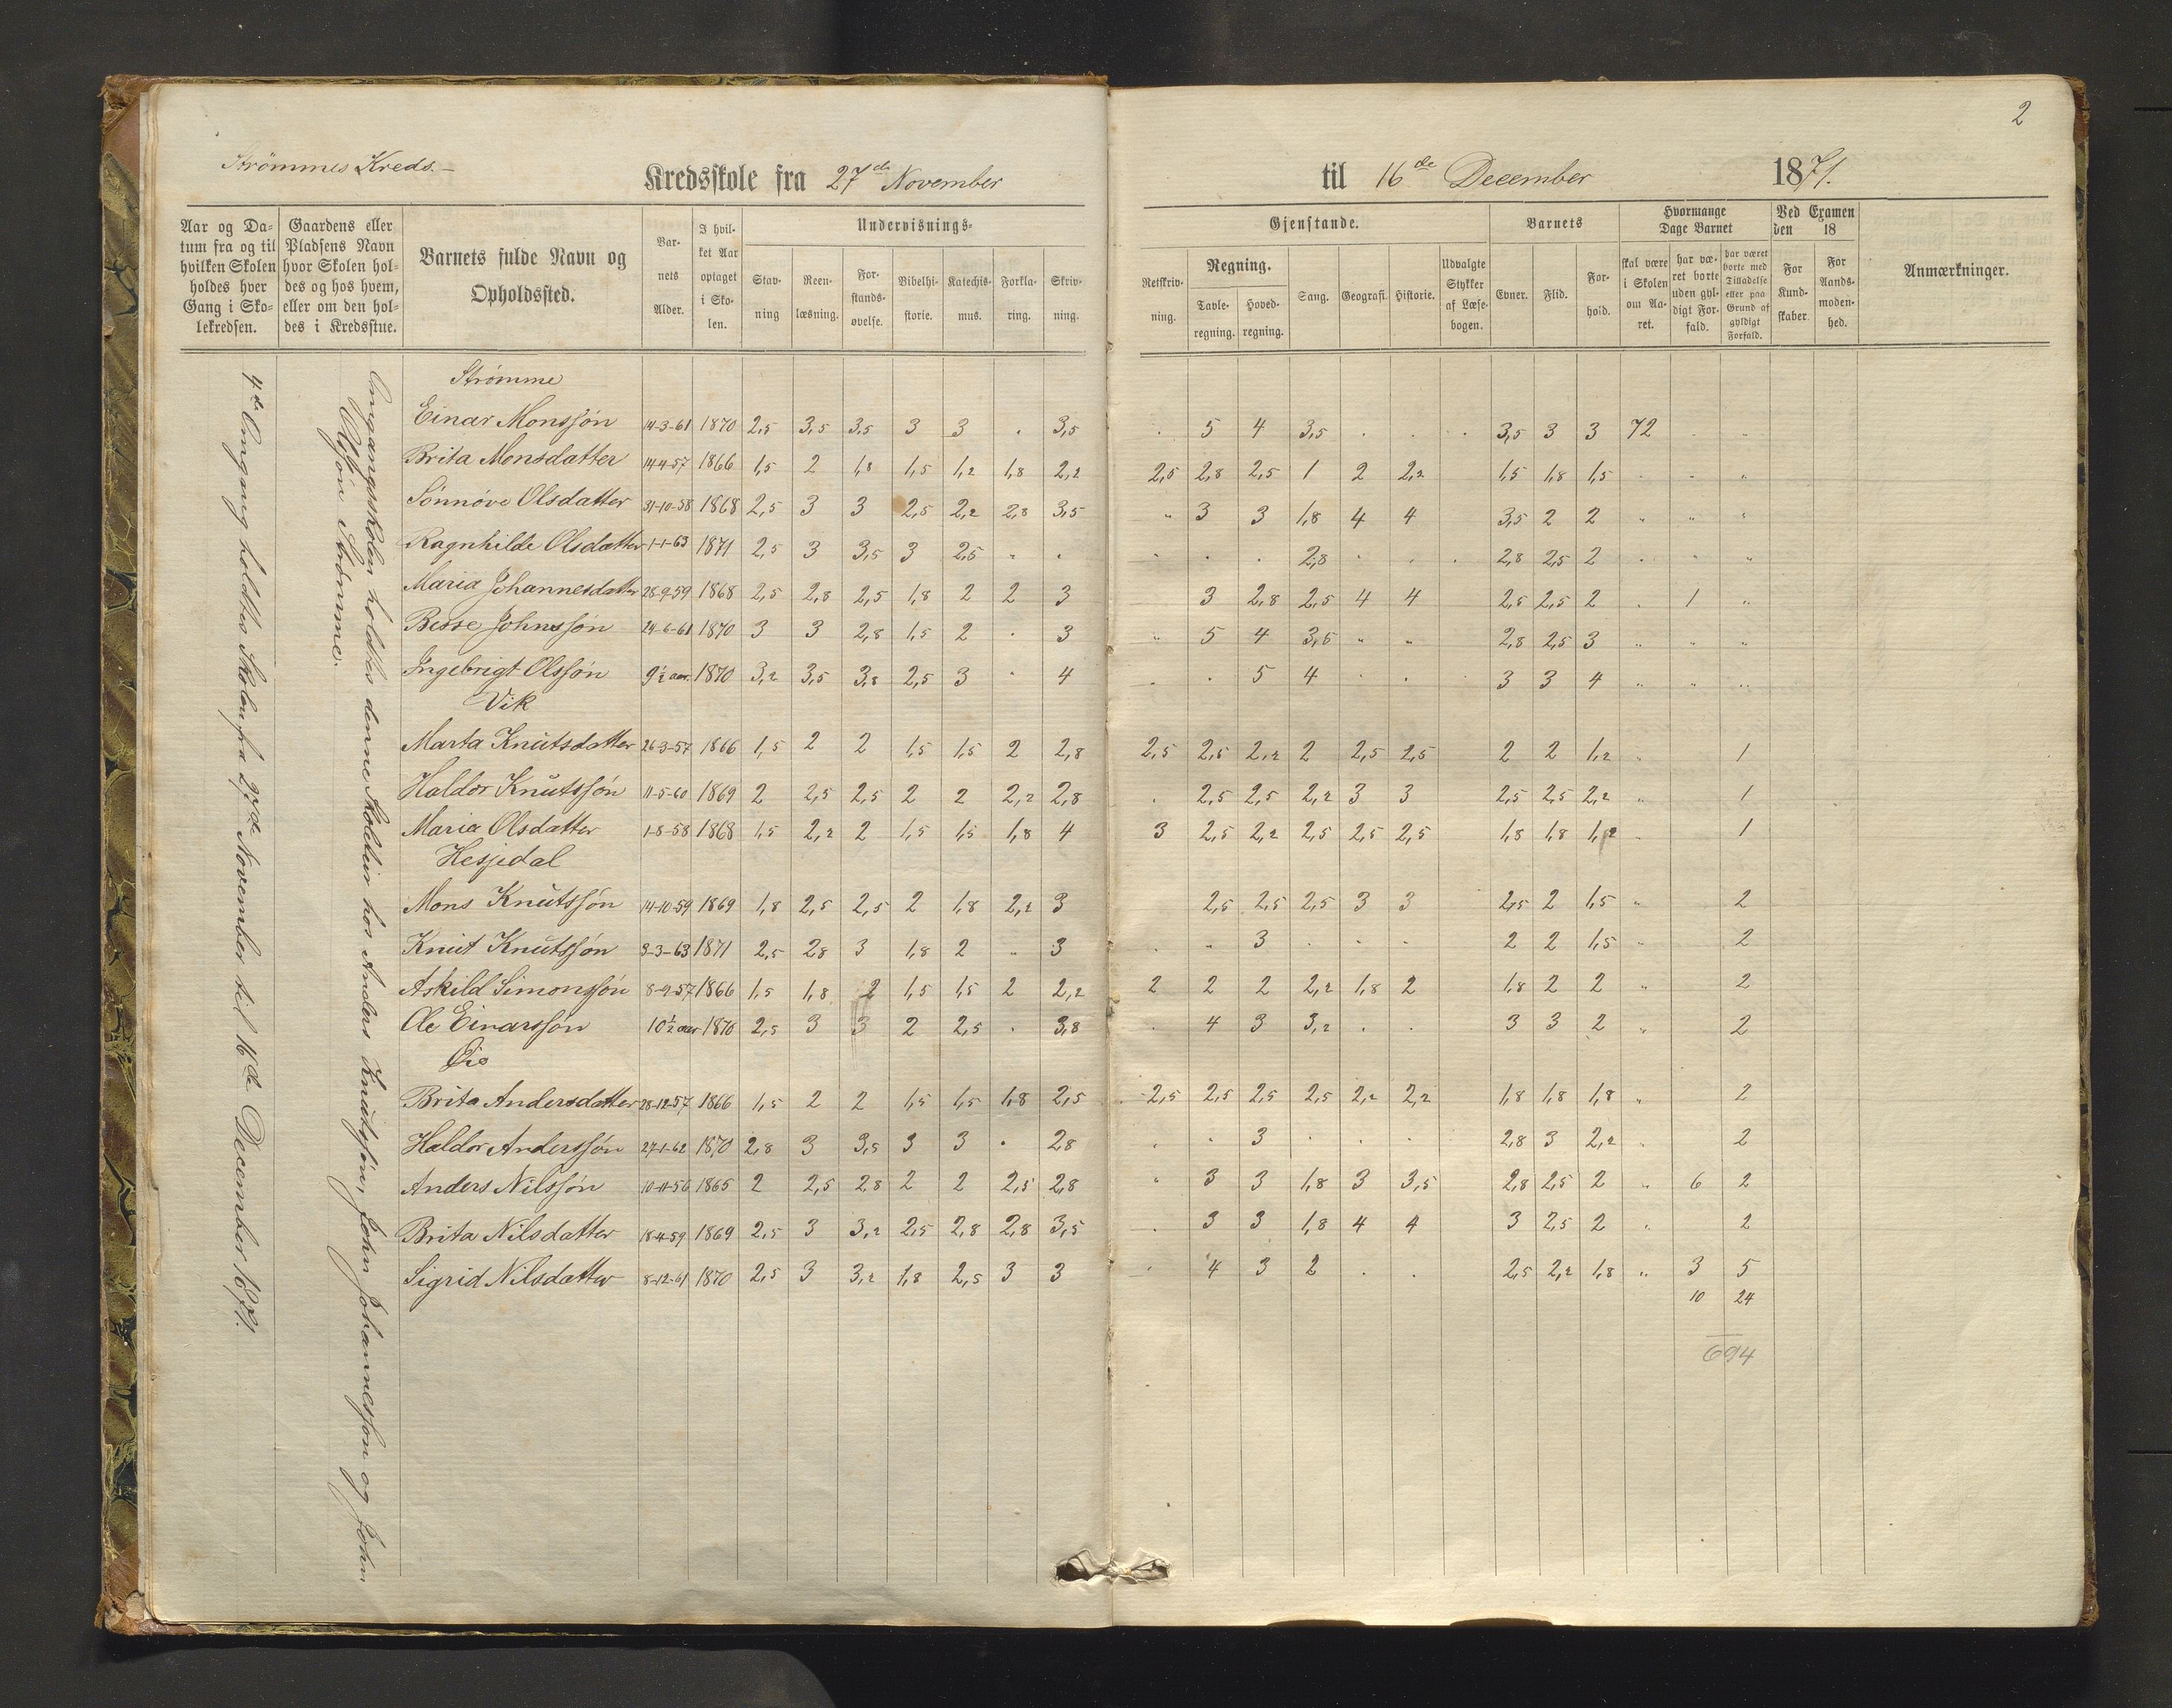 2
Strömmes Kreds.
Kredsskole fra 27de November til 16de December 1871.
Aar og Da-
tum fra og til
hvilken Skolen
holdes hver
Gang i Sko-
lekredsen.
Gaardens eller
Pladsens Navn
hvor Skolen hol-
des og hos hvem,
eller om den hol-
des i Kredsstue.
Barnets fulde Navn og
Opholdssted.
Bar-
nets
Alder.
I hvil-
ket Aar
optaget
i Sko-
len.
Undervisnings-
Stav-
ning
Reen-
læsning.
For-
stands-
øvelse.
Bibelhi-
storie.
Katechis-
mus.
Forkla-
ring.
Skriv-
ning.
Gjenstande.
Retskriv-
ning.
Regning.
Tavle-
regning.
Hoved-
regning.
Sang.
Geografi.
Historie.
Udvalgte
Stykker
af Læse-
bogen.
Barnets
Evner.
Flid.
For-
hold.
Hvormange
Dage Barnet
skal være
i Skolen
om Aa-
ret.
har væ-
ret borte
uden gyl-
digt For-
fald.
har været
borte med
Tilladelse
eller paa
Grund af
gyldigt
Forfald.
Ved Examen
den 18
For
Kund-
skaber
For
Aands-
moden-
hed.
Anmærkninger.
4de Omgang holdtes Skolen fra 27de November til 16de December 1871.
Omgangsskolen holdtes denne Skoletur hos Anders Knutssön, John Johannessön og John
Olssön Strömme.
Strömme
Einar Monssön 14-3-61 1870 2,5 3,5 3,5 3 3 . 3,5 . 5 4 3,5 . . . 3,5 3 3 72 . .
Brita Monsdatter 14-4-57 1866 1,5 2 1,8 1,5 1,2 1,8 2,2 2,5 2,8 2,5 1 2 2,2 1,5 1,8 1,5 . . .
Sönnöve Olsdatter 31-10-58 1868 2,5 3 3 2,5 2,2 2,8 3,5 " 3 3 1,8 4 4 3,5 2 2 " " "
Ragnhilde Olsdatter 1-1-63 1871 2,5 3 3,5 3 2,5 . . . . . 2,8 . . . 2,8 2,5 2 . " "
Maria Johannesdatter 28-9-59 1868 2,5 2,8 2,5 1,8 2 2 3 3 2,8 2,5 4 4 2,5 2,5 2 . 1 "
Besse Johnssön 24-6-61 1870 3 3 2,8 1,5 2 . 3 " 5 4 3,5 " " 2,8 2,5 3 " " "
Ingebrigt Olssön 9½ aar. 1870 3,2 3,5 3,8 2,5 3 . 4 . . 5 4 . . 3 3 4 " " "
Vik
Marta Knutsdatter 26-3-57 1866 1,5 2 2 1,5 1,5 2 2,8 2,5 2,5 2,2 2 2,5 2,5 2 2 1,2 " 1
Haldor Knutssön 11-5-60 1869 2 2,5 2,5 2 2 2,2 2,8 . 2,5 2,5 2,2 3 3 2,5 2,5 2,2 " 1
Maria Olsdatter 1-8-58 1868 1,5 2,2 2 1,5 1,5 1,8 4 3 2,5 2,2 2,5 2,5 2,5 1,8 1,8 1,2 . 1
Hesjedal
Mons Knutssön 14-10-59 1869 1,8 2,5 2,5 2 1,8 2,2 3 2,5 2,5 2,5 3 3 2,5 2 1,5 " 2
Knut Knutssön 3-3-63 1871 2,5 2,8 3 1,8 2 " 3 . " 3 . . . 2 2 1,5 " 2
Askild Simonssön 8-9-57 1866 1,5 1,8 2 1,5 1,5 2 2,2 2 2 2 2,2 1,8 2 1,8 2 2 " 2
Ole Einarssön 10½ aar 1870 2,5 3 3 2 2,5 . 3,8 . 4 3 3,2 . . 3 3 2 " 2
Öie
Brita Andersdatter 28-12-57 1866 1,5 2 2 1,5 1,5 1,8 2,5 2,5 2,5 2,5 2,5 2,2 2,2 1,8 1,8 1,8 " 2
Haldor Anderssön 27-1-62 1870 2,8 3 3,5 3 3 . 2,8 . . 3 . . . 2,8 3 2,2 " 2
Anders Nilssön 10-11-56 1865 2 2,5 2,8 2 2 2,5 2,8 " 3 3 1,8 3 3,5 2,8 2,5 2 " 6 2
Brita Nilsdatter 18-4-59 1869 2,5 3 3,2 2,5 2,8 2,8 3,5 . 3 3 1,8 4 4 3 2,5 2 " 2
Sigrid Nilsdatter 8-12-61 1870 2,5 3 3,2 1,8 2,5 3 3 . 4 3 2 . . 2,5 2,2 1,8 " 3 5
10 24
694